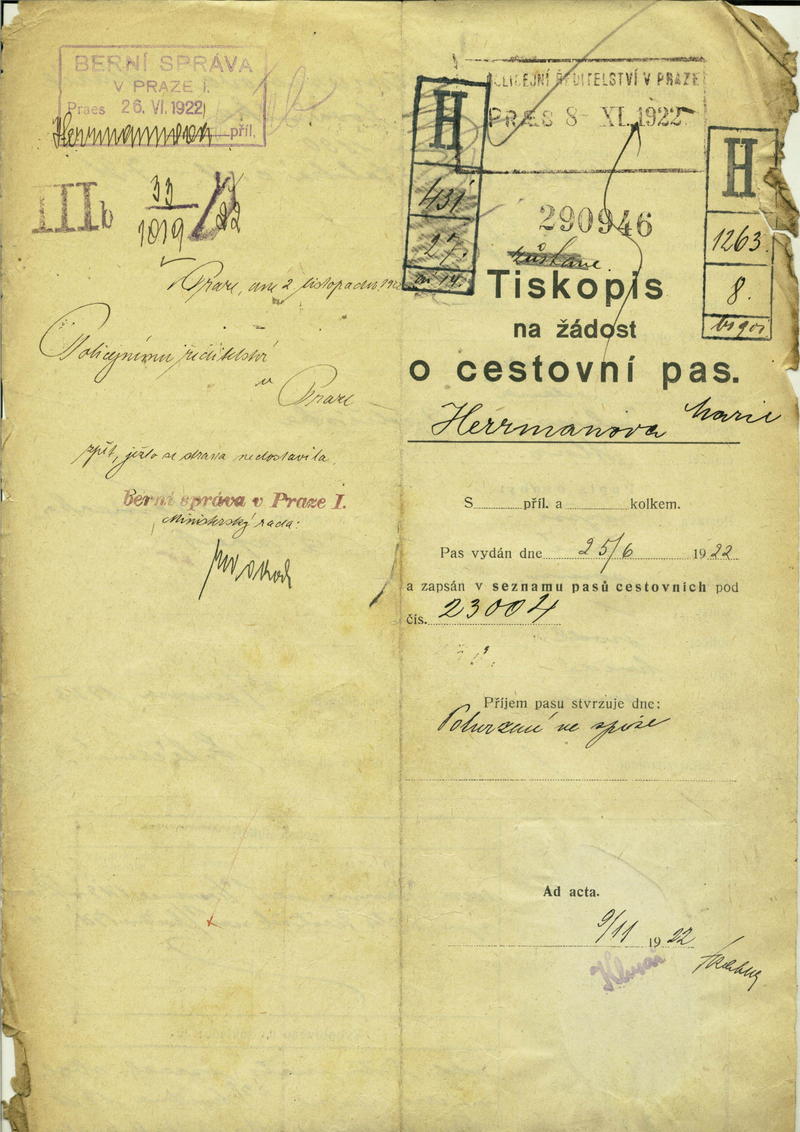 BERNÍ SPRÁVA
V PRAZE I.
Praes 26. VI. 1922
příl.
IIIb
33
1019
V Praze, dne 2 listopadu
Policejnímu ředitelství
v
Praze
zpět, ježto se strana nedostavila.
Berní správa v Praze I.
Ministerský rada:
POLICEJNÍ ŘEDITELSTVÍ V PRAZE
PRAES 8- XI. 1922
H
431
27.
H
1263.
8.
290946
Tiskopis
na žádost
o cestovní pas.
Herrmanova Marie
S příl. a kolkem.
Pas vydán dne 25/6 1922
a zapsán v seznamu pasů cestovních pod
čís. 23004
Příjem pasu stvrzuje dne:
Potvrzení ve spise
Ad acta.
9/11 1922